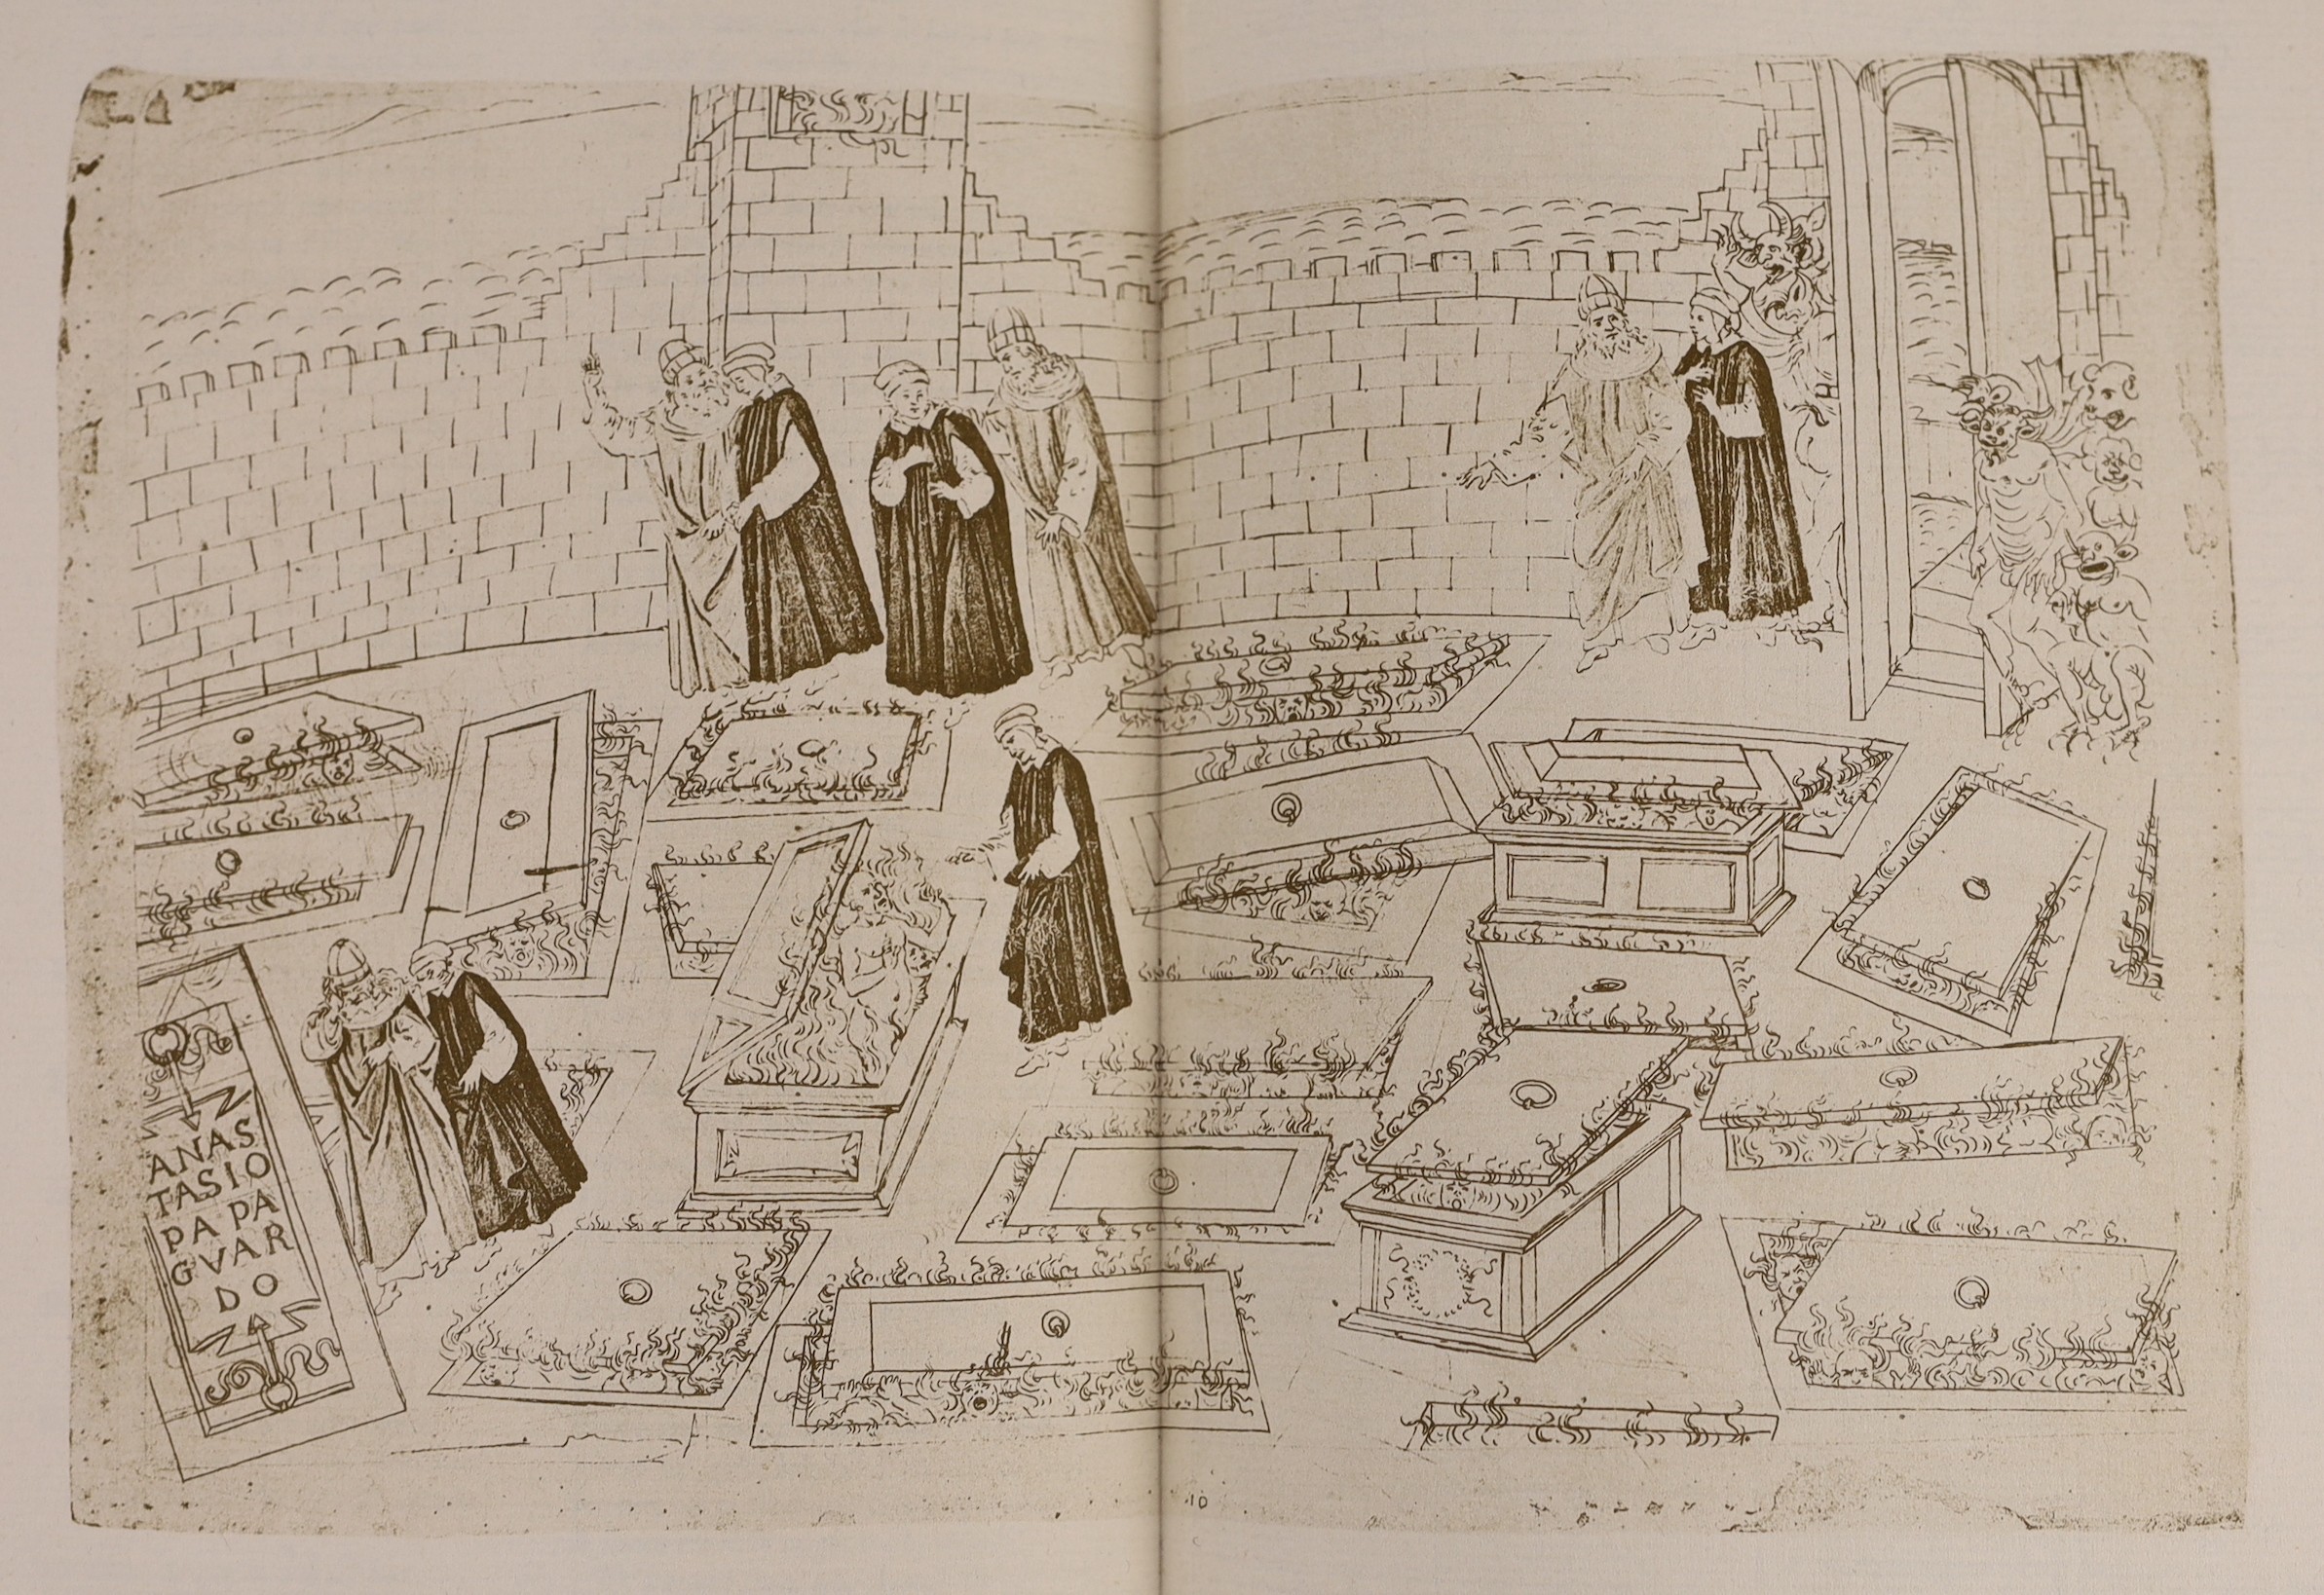 ANAS
TASIO
PAPA
GVAR
DO
10